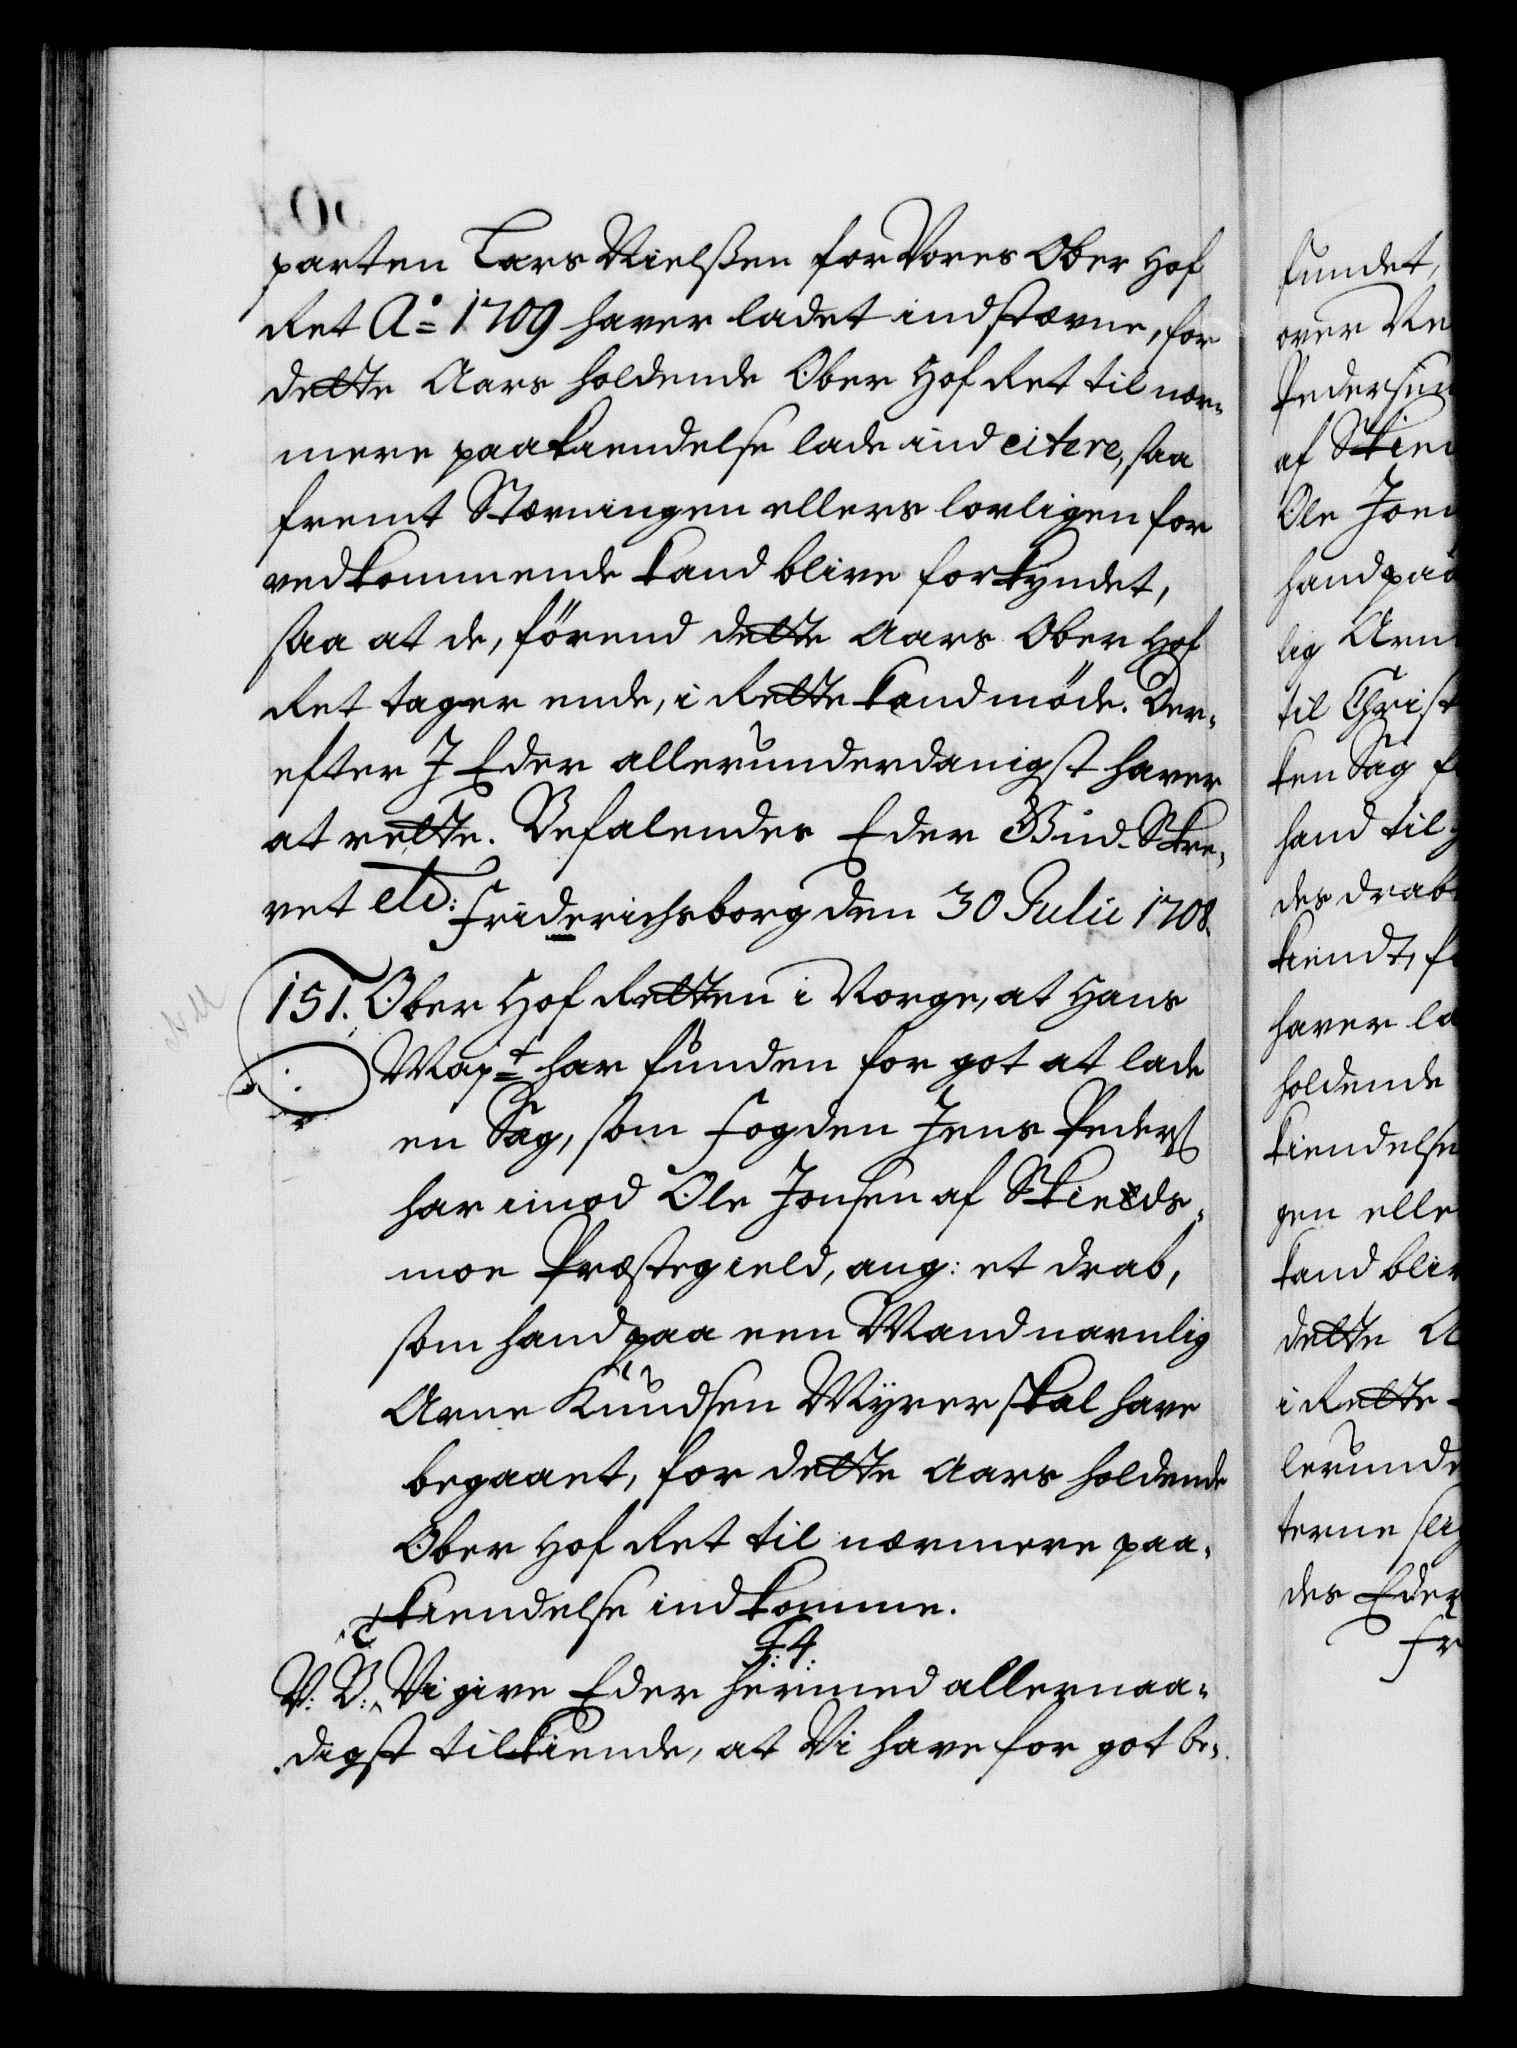 parten Lars Nielssen for Vores Ober Hof
Ret Ao= 1709 haver ladet indstævne, for
dette Aars holdende Ober Hof Ret til nær-
mere paakiendelse lade ind citere, saa
fremt Stævningen ellers lovligen for
vedkommende kand blive forkyndet,
saa at de, förend dette Aars Ober Hof
Ret tager ende, i Rette kand möde. Der-
efter I Eder allerunderdanigst haver
at rette. Befalendes Eder Gud. Skre-
vet etc: Friderichsborg den 30 Julii 1708.
151. Ober Hof Retten i Norge, at Hans
Majt= har funden for got at lade
en Sag, som fogden Jens Peders
har imod Ole Jonsen af Skieds-
moe Præstegield, ang: et drab,
som hand paa een Mand navnlig
Arne Knudsen Myrer skal have
begaaet, for dette Aars holdende
Ober Hof Ret til nærmere paa-
kiendelse indkomme.
F: 4:
V: V: Vi give Eder hermed allernaa-
digst tilkiende, at Vi have for got be-
fundet,
over Ne
Pedersen
af Skie
Ole Jon
hand paa
lig Arn
til Christ
ken Sag f
hand til
des drab
kiendt, f
haver la
holdende
kiendelse
gen elle
kand bliv
dette A
i Rette
lerunde
terne
des Eder
Fr